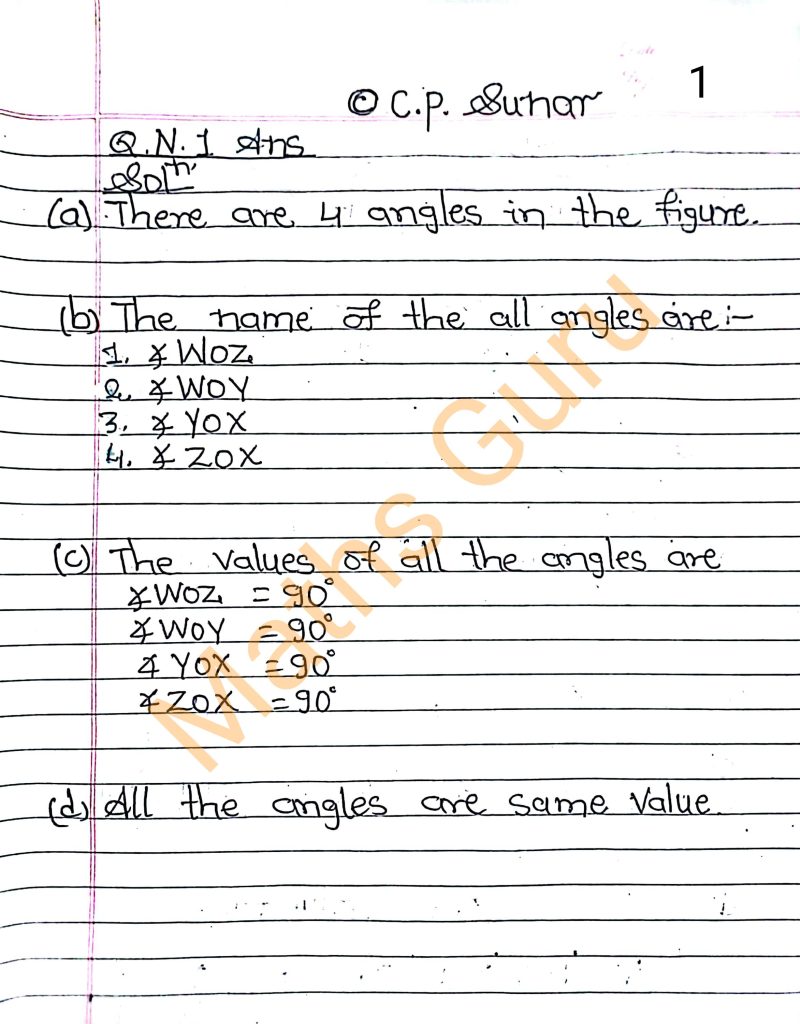 © C.P. Sunar
1
Q.N.1 Ans
Solⁿ
(a) There are 4 angles in the figure.
(b) The name of the all angles are:-
1. ∡WOZ
2. ∡WOY
3. ∡YOX
4. ∡ZOX
(c) The values of all the angles are
∡WOZ = 90°
∡WOY = 90°
∡YOX = 90°
∡ZOX = 90°
(d) All the angles are same value.
Maths Guru